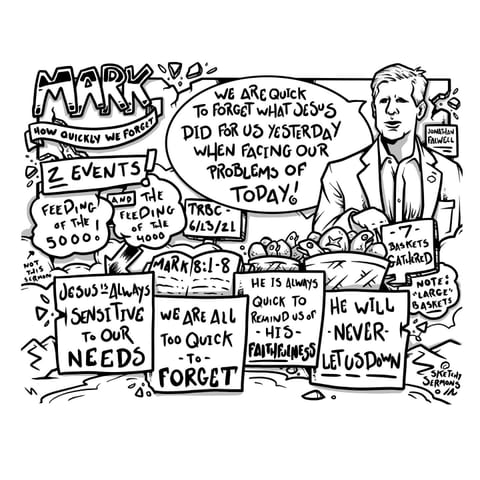 MARK
HOW QUICKLY WE FORGET
WE ARE QUICK
TO FORGET WHAT JESUS
DID FOR US YESTERDAY
WHEN FACING OUR
PROBLEMS OF
TODAY!
JONATHAN
FALWELL
2 EVENTS!
FEEDING
OF THE
5000!
AND
THE
FEEDING
OF THE
4000
TRBC -
6/23/21
NOT
THIS
SERMON
MARK 8:1-8
-7-
BASKETS
GATHERED
NOTE:
"LARGE"
BASKETS
JESUS IS ALWAYS
SENSITIVE
TO OUR
NEEDS
WE ARE ALL
TOO QUICK
- TO -
FORGET
HE IS ALWAYS
QUICK TO
REMIND US OF
- HIS -
FAITHFULNESS
HE WILL
- NEVER -
LET US DOWN
©
SKETCHY
SERMONS